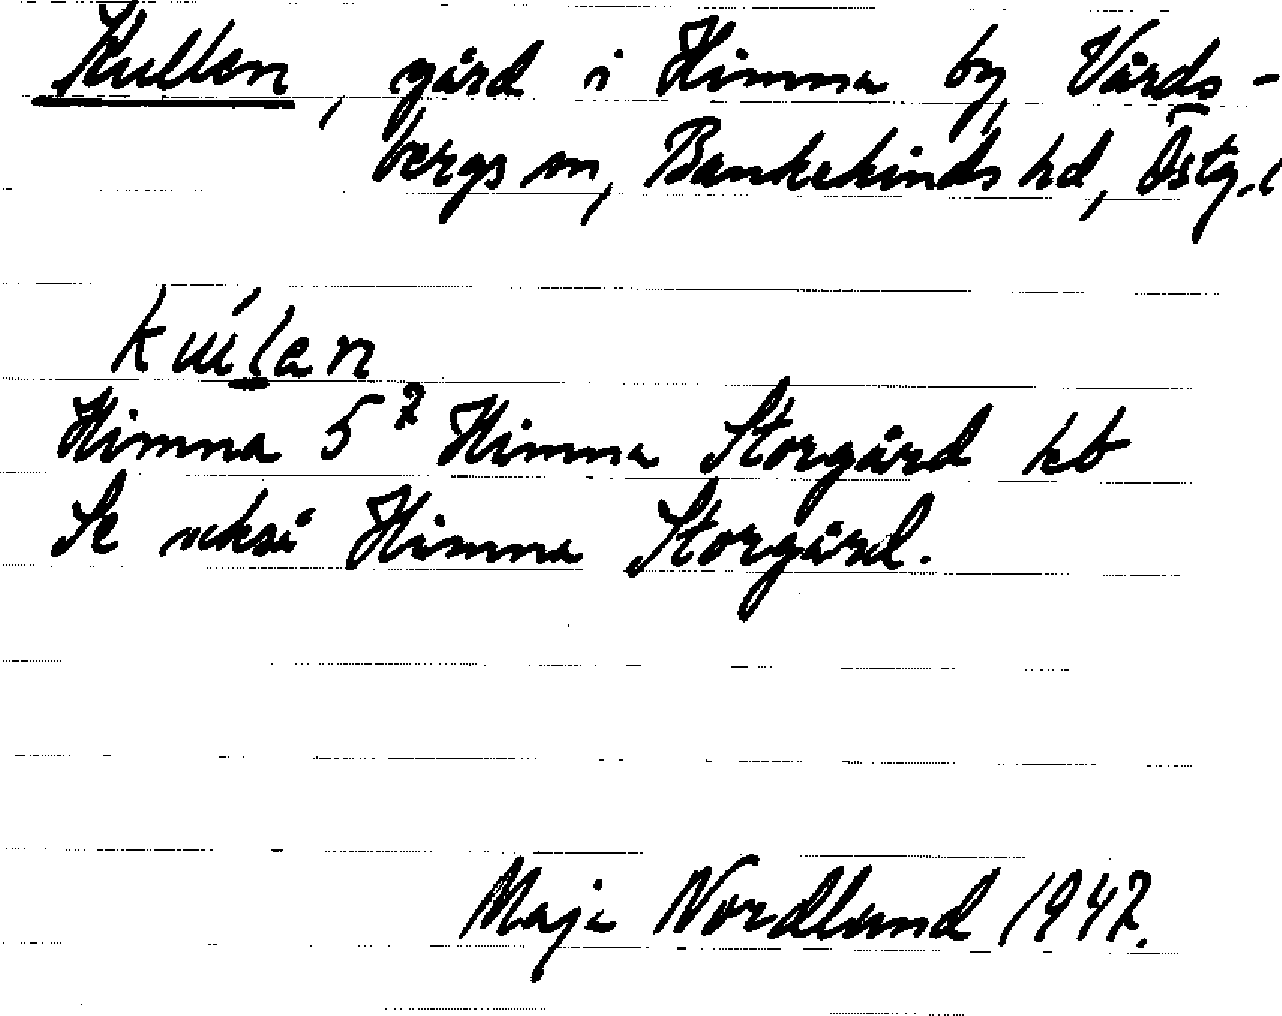 Kullen, gård i Himna by, Vårds-
bergs sn, Bankekinds hd, Östg.l
Himna 5² Himna Storgård kb
Se också Himna Storgård.
Maja Nordlund 1942.